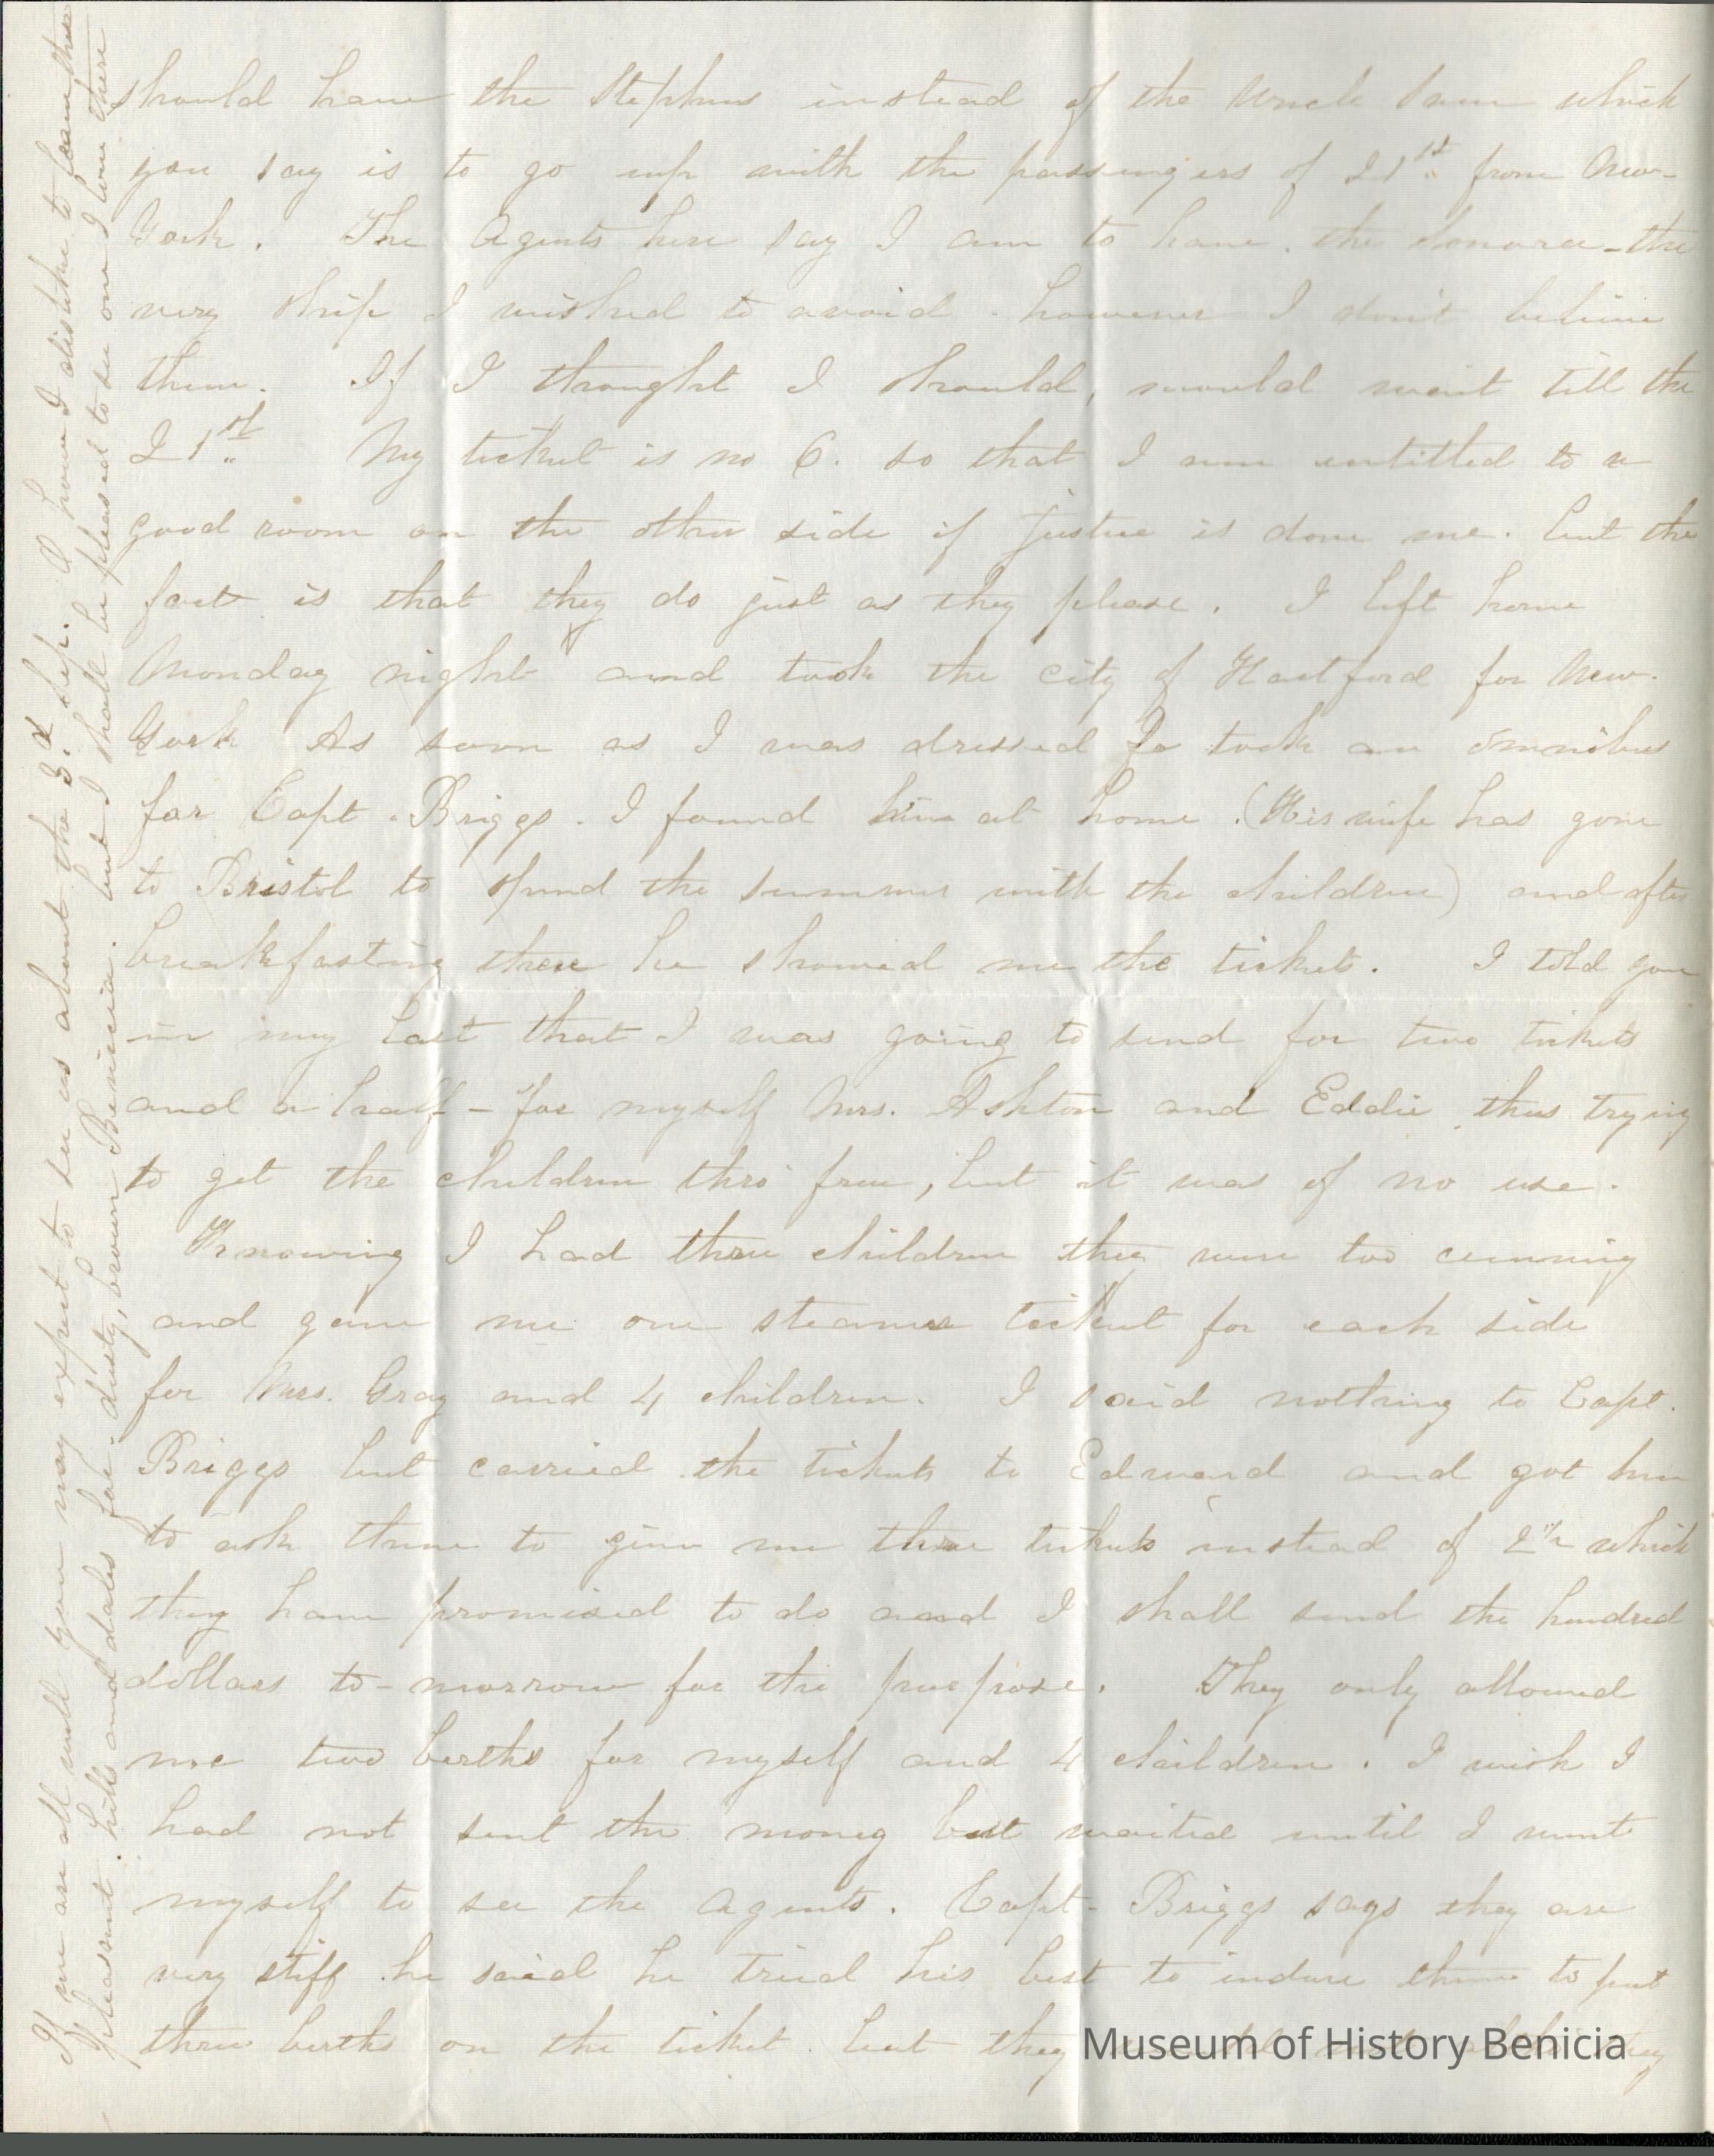 should have the Stephens instead of the Uncle Sam which
you say is to go up with the passengers of 21st from New-
York. The Agents here say I am to have the Sonora - the
very ship I wished to avoid - however I don't believe
them. If I thought I should, would wait till the
21st My ticket is no 6. so that I am entitled to a
good room on the other side if justice is done me. but the
fact is that they do just as they please. I left home
Monday night and took the city of Hartford for New-
York As soon as I was dressed I took an omnibus
for Capt. Briggs. I found him at home. (His wife has gone
to Bristol to spend the summer with the children) and after
breakfasting there he showed me the tickets. I told you
in my last that I was going to send for two tickets
and a half - for myself Mrs. Ashton and Eddie, thus trying
to get the children thro' free, but it was of no use.
Knowing I had three children they were too cunning
and gave me one steamer ticket for each side
for Mrs. Gray and 4 children. I said nothing to Capt.
Briggs but carried the tickets to Edward and got him
to ask them to give me three tickets instead of 2 1/2 which
they have promised to do and I shall send the hundred
dollars to-morrow for the purpose. They only allowed
me two berths for myself and 4 children. I wish I
had not sent the money but waited until I went
myself to see the Agents. Capt- Briggs says they are
very stiff he said he tried his best to induce them to put
three berths on the ticket but they
Museum of History Benicia
If we are all well you may expect to see us about the 3.d Sep. O how I dislike to leave these
pleasant hills and dales for dusty, brown Benicia. but I shall be pleased to see one I love there